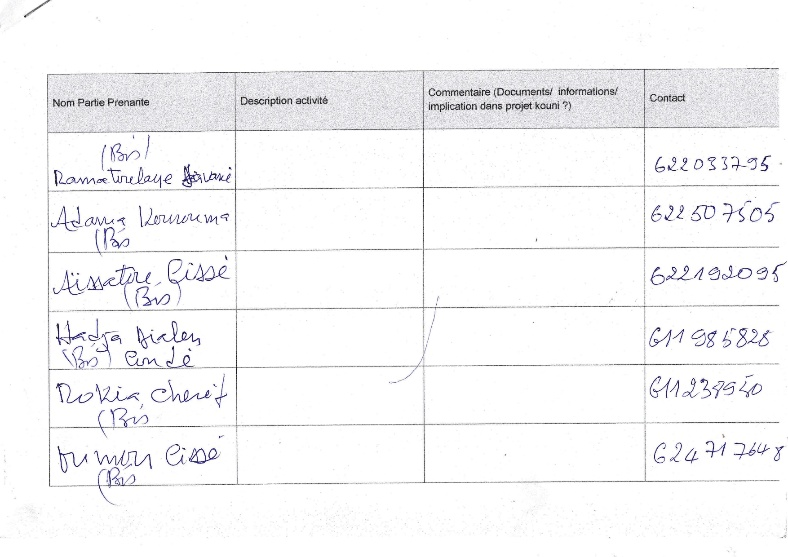 Nom Partie Prenante
Description activité
Commentaire (Documents/ informations/
implication dans projet kouni ?)
Contact
(Bis)
Ramatoulaye
622033795
Adama Kourouma
(Bis
622507505
Aïssatou Cissé
(Bis)
622192095
Hadja
(Bis) Condé
611985828
Rokia, cherif
(Bis
Cissé
(Bis
624717648